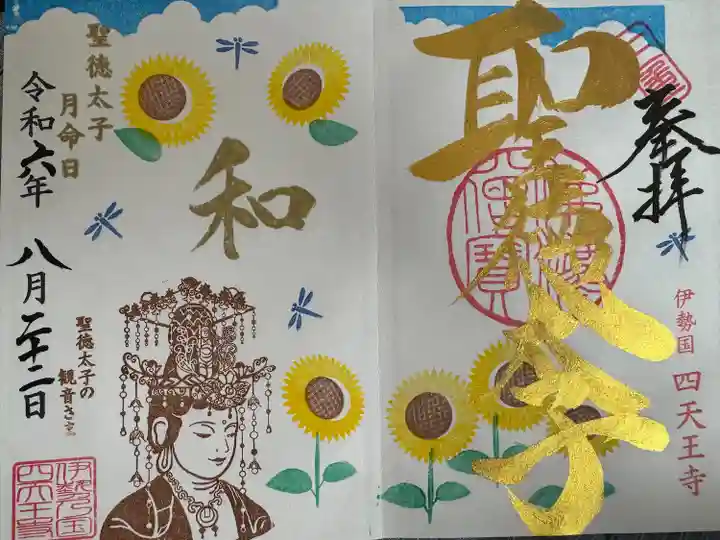 奉拝
聖徳太子
伊勢国 四天王寺
佛法僧寶
和
聖徳太子
月命日
令和六年
八月二十二日
聖徳太子の
観音さま
伊勢国
四天王寺